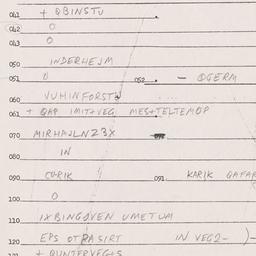 041 + QBINSTU
042 O
043 O
050 INDERHEJM
051 O 052 — QGERM
060 VUHINFORST
061 + QAP IMIT+VEG MES+TELTEMOP
070 MIRHAJLNZ3X
080 IN
090 CURIK 091 KARIK QAFAR
100 O
110 IXBINGOVEN UMETUM
120 EPS OTRASIRT IN VEG2-
+ QUNTERVEG+S